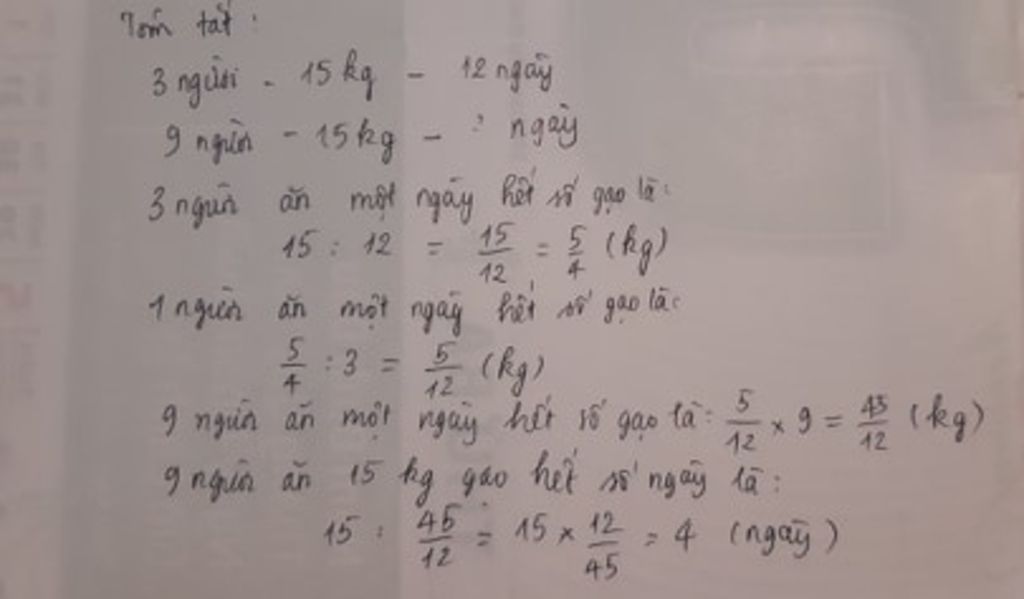 Tóm tắt :
3 người - 15 kg - 12 ngày
9 người - 15 kg - ? ngày
3 người ăn một ngày hết số gạo là:
15 : 12 = 15/12 = 5/4 (kg)
1 người ăn một ngày hết số gạo là:
5/4 : 3 = 5/12 (kg)
9 người ăn một ngày hết số gạo là: 5/12 x 9 = 45/12 (kg)
9 người ăn 15 kg gạo hết số ngày là :
15 : 45/12 = 15 x 12/45 = 4 (ngày)